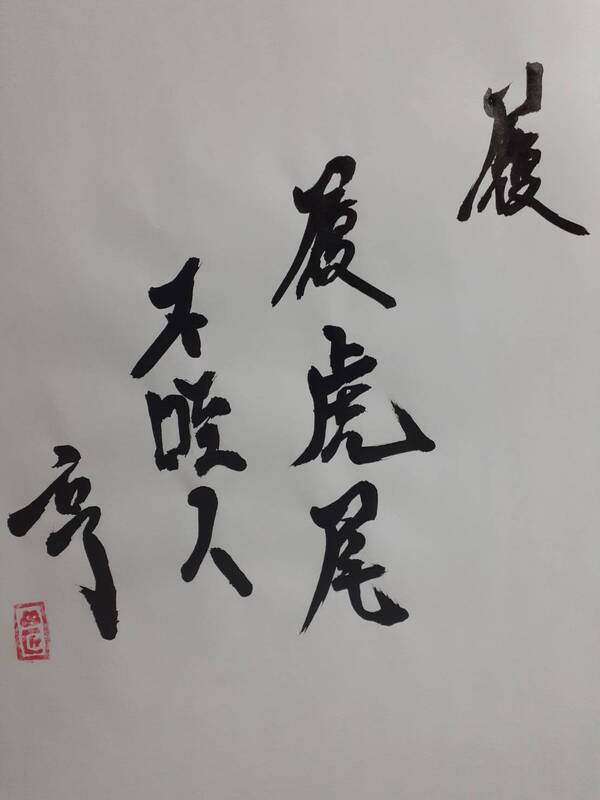 履
履虎尾
不咥人
亨